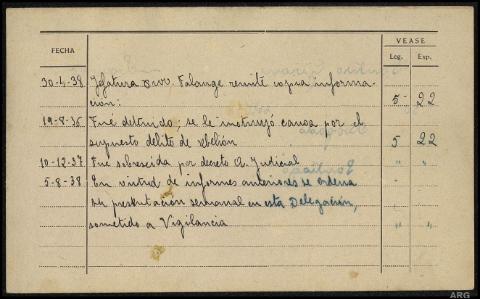 VEASE
FECHA Leg. Exp.
30-4-38 Jefatura Falange remite copia informa-
ción: 5 22
19-8-36 Fué detenido; se le instruyó causa por el
supuesto delito de rebelión 5 22
10-12-37 Fué sobreseida por decreto A. Judicial " "
5-8-38 En virtud de informes anteriores se ordena
su presentación semanal en esta Delegación,
sometido a Vigilancia " "
ARG